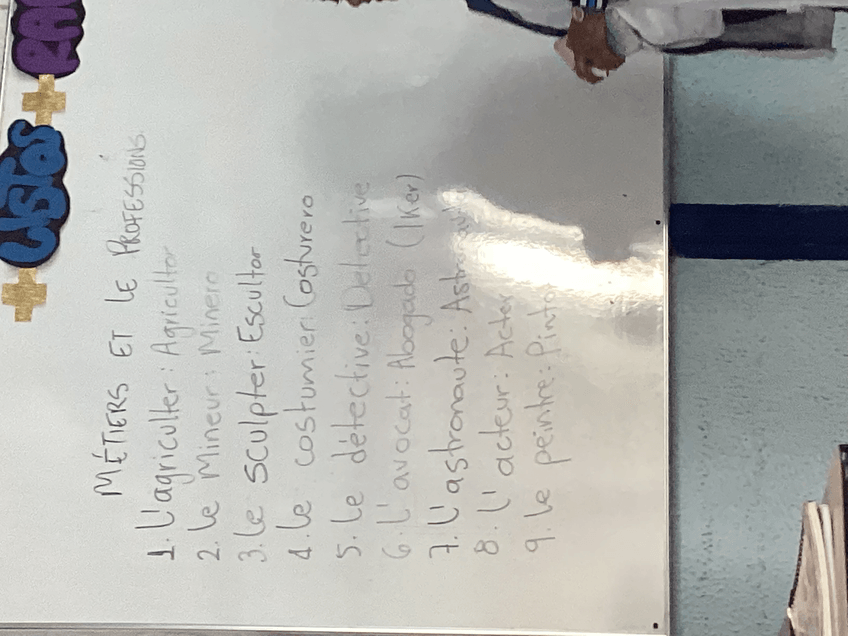 LISTOS
MÉTIERS ET LE PROFESSIÓNS.
1. L'agriculter: Agricultor
2. Le Mineur: Minero
3. Le SCulpter: Escultor
4. Le costumier: Costurero
5. Le détective: Detective
6. L'avocat: Abogado (IKer)
7. L'astronaute:
8. L'acteur: Actor
9. Le peintre: Pintor